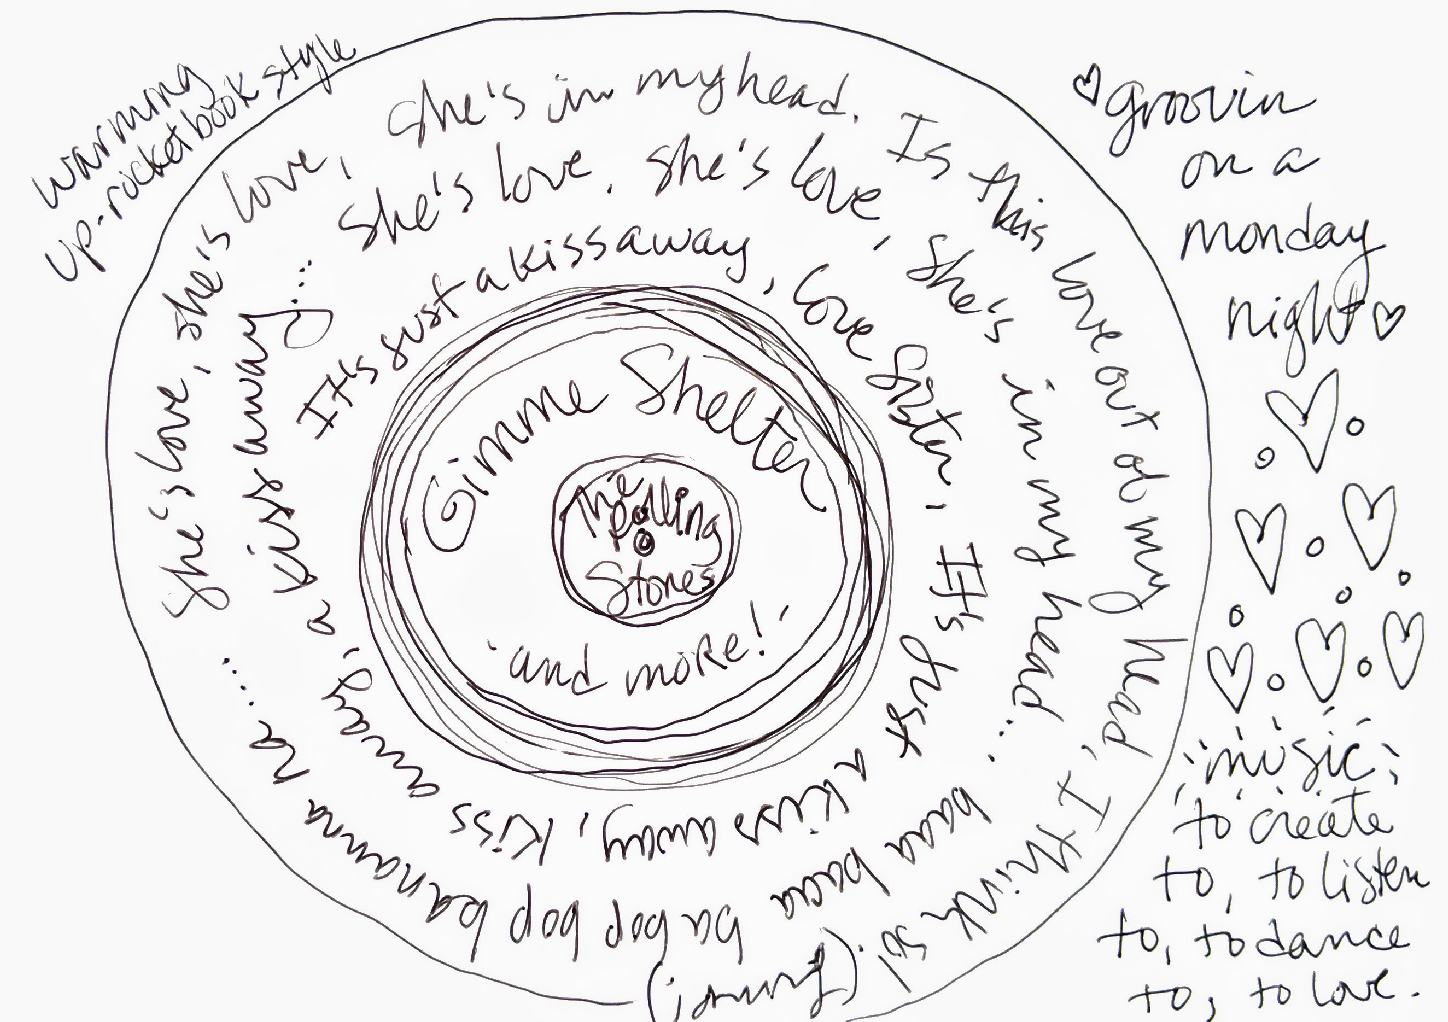 warming
up-rocketbook style
She's love, she's love, she's in my head. Is this love out of my head, I think so!
It's just a kiss away, love sister, It's just a kiss away, kiss away, a kiss away... she's love. she's love, she's in my head... baaa baaa ba bop bop bananna na ....
Gimme Shelter
The
Rolling
Stones
and more!
groovin
on a
monday
night
music
to create
to, to listen
to, to dance
to, to love.